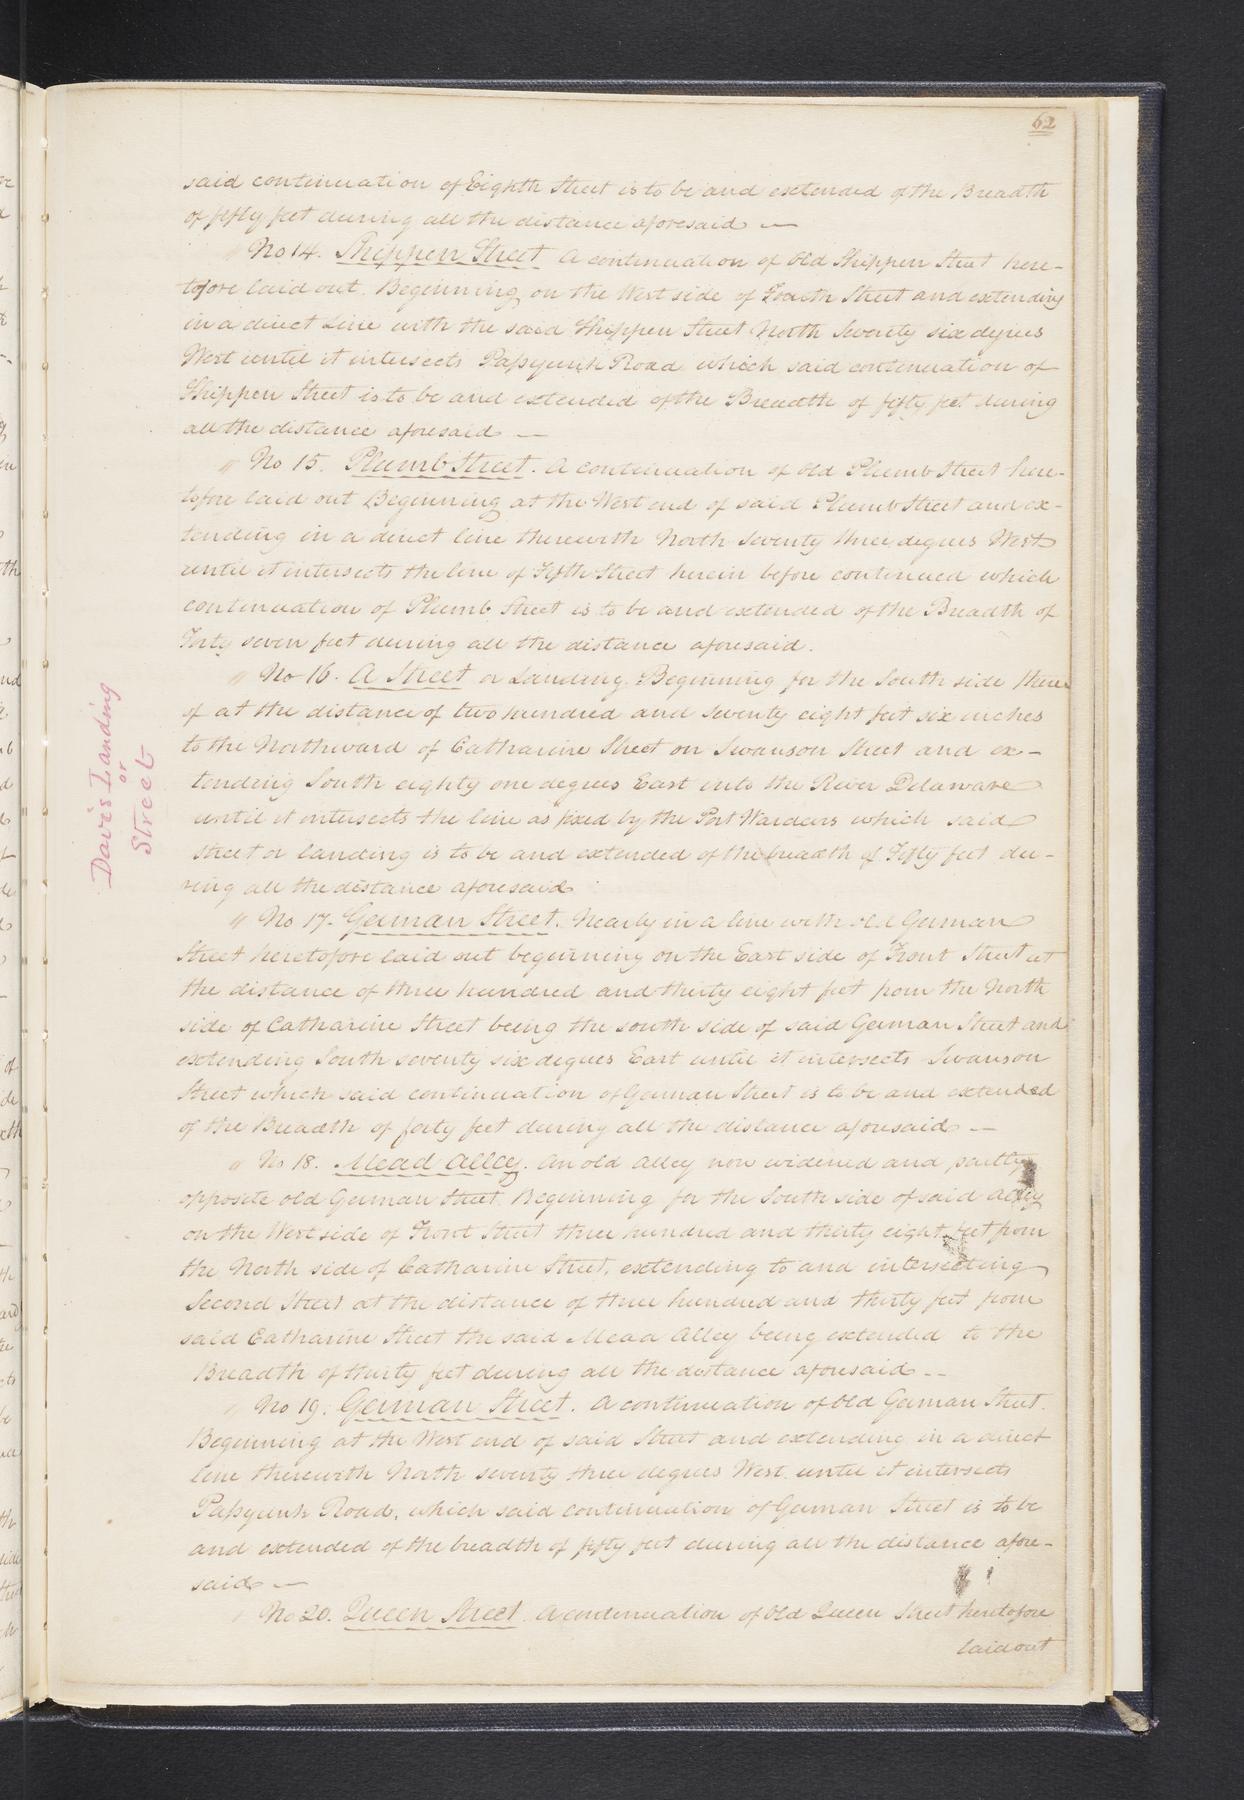 62
said continuation of Eighth Street is to be and extended of the Breadth
of fifty feet during all the distance aforesaid —
" No 14. Shippen Street A continuation of Old Shippen Street here-
tofore laid out. Beginning on the West side of Fourth Street and extending
in a direct Line with the said Shippen Street North Seventy six degrees
West until it intersects Passyunk Road which said continuation of
Shippen Street is to be and extended of the Breadth of fifty feet during
all the distance aforesaid —
" No 15. Plumb Street. A continuation of old Plumb Street here-
tofore laid out Beginning at the West end of said Plumb Street and ex-
tending in a direct line therewith North Seventy three degrees West
until it intersects the line of Fifth Street herein before continued which
continuation of Plumb Street is to be and extended of the Breadth of
Forty seven feet during all the distance aforesaid.
" No 16. A Street or Landing. Beginning for the South side there
of at the distance of two hundred and seventy eight feet six inches
to the Northward of Catharine Street on Swanson Street and ex-
tending South eighty one degrees East into the River Delaware
until it intersects the line as fixed by the Port Wardens which said
street or landing is to be and extended of the breadth of Fifty feet du-
ring all the distance aforesaid
Davis Landing
or
Street
" No 17. German Street. Nearly in a line with old German
Street heretofore laid out beginning on the East side of Front Street at
the distance of three hundred and thirty eight feet from the North
side of Catharine Street being the south side of said German Street and
extending South seventy six degrees East until it intersects Swanson
Street which said continuation of German Street is to be and extended
of the Breadth of forty feet during all the distance aforesaid —
" No 18. Mead Alley. An old Alley now widened and partly
opposite old German Street. Beginning for the South side of said Alley
on the West side of Front Street three hundred and thirty eight feet from
the North side of Catharine Street, extending to and intersecting
Second Street at the distance of three hundred and thirty feet from
said Catharine Street the said Mead Alley being extended to the
Breadth of thirty feet during all the distance aforesaid --
" No 19. German Street. A continuation of Old German Street.
Beginning at the West end of said Street and extending in a direct
line therewith North seventy three degrees West. until it intersects
Passyunk Road, which said continuation of German Street is to be
and extended of the breadth of fifty feet during all the distance afore-
said —
" No 20. Queen Street. A continuation of Old Queen Street heretofore
laid out